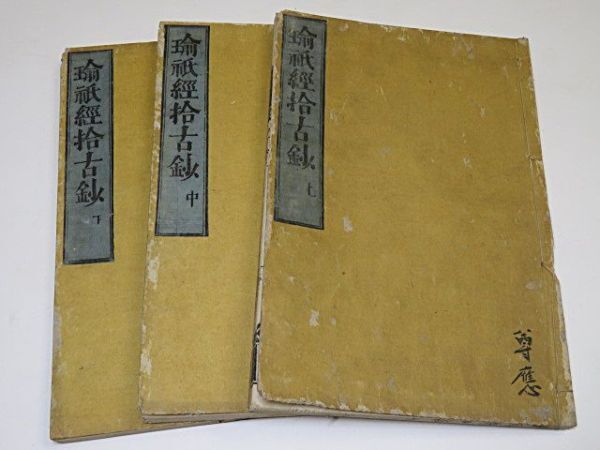 瑜祇經拾古鈔 上
瑜祇經拾古鈔 中
瑜祇經拾古鈔 下
尊應